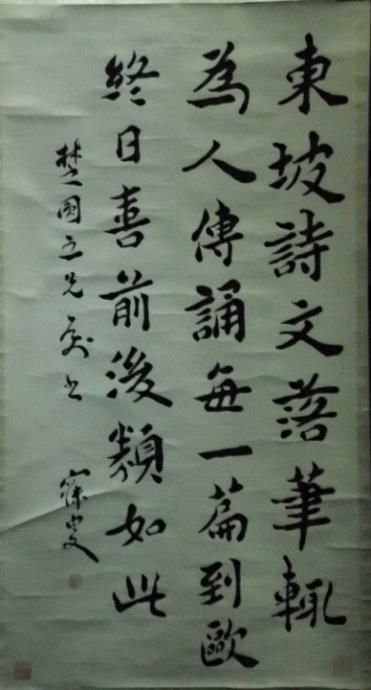 東坡詩文落筆輒
為人傳誦每一篇到歐
終日喜前後類如此
楚國五兄屬書
寐叟